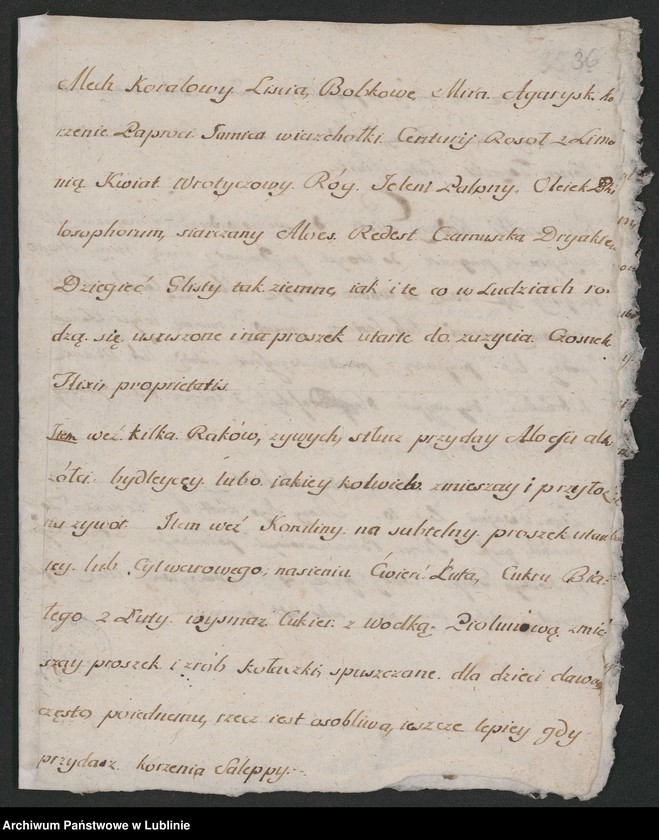 36
Mech Koralowy Liscia, Bobkowe Mira. Agarysk. ko
rzenie Paproci Samica wierzchołki. Centurij Rosoł z Limo
nią Kwiat Wrotyczowy. Róg. Jeleni Palony. Oleiek Phi
losophorum, siarczany Aloes. Redest. Czarnuszka Dryakiew
Dziegieć Glisty tak ziemne, iak i te co w Ludziach ro-
dzą się ususzone i na proszek utarte do zazycia. Czosnek
Elixir proprietatis
Item weź kilka Raków, zywych, stłucz przyday Aloesu alb
zółci bydlęcey. lubo iakiey kolwiek zmieszay i przyłoż
na zywot. Item weź Koraliny. na subtelny proszek utar
tey. lub Cytwarowego, nasienia. Ćwierć Łuta, Cukru Bia-
łego 2 Łuty wysmaż Cukier z wodką. Piołunową, zmie
szay proszek i zrób kołaczki, spuszczane. dla dzieci daway
często poiednemu, rzecz iest osobliwa, ieszcze lepiey gdy
przydasz korzenia Saleppy.
Archiwum Państwowe w Lublinie